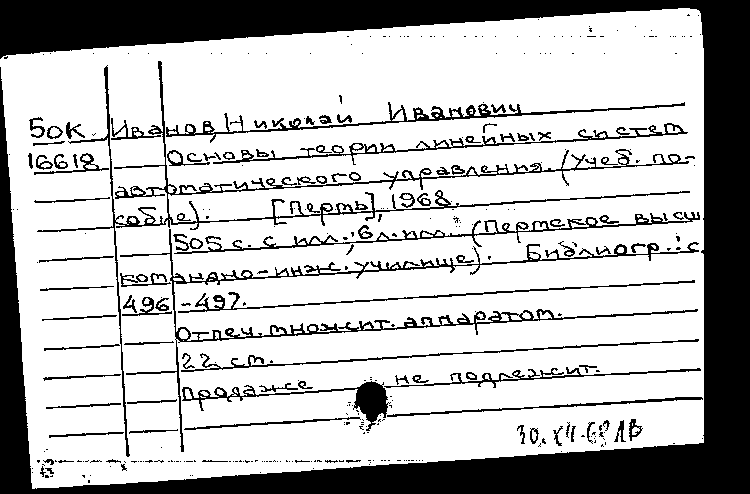 50К. Иванов, Николай Иванович
16618 Основы теории линейных систем
автоматического управления. (Учеб. по-
собие). [Пермь], 1968.
505 с. с илл.; 6 л. илл. (Пермское высш.
командно-инж. училище). Библиогр.: с.
496-497.
Отпеч. множит. аппаратом.
22 см.
Продаже не подлежит.